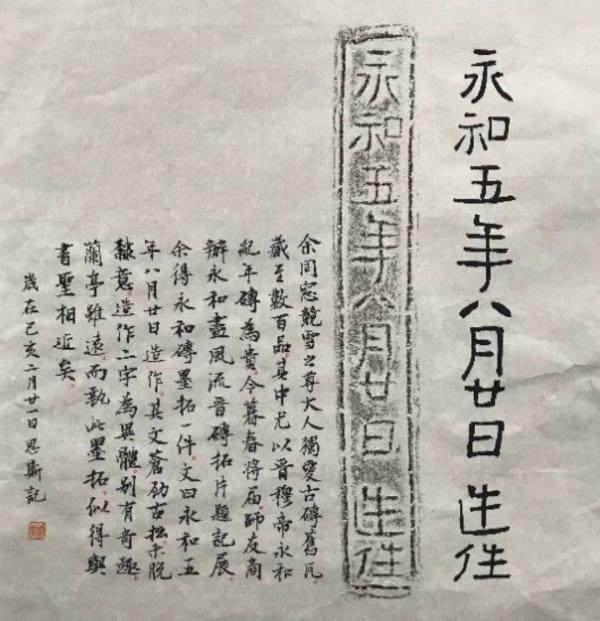 永和五年八月廿日造作
永和五年八月廿日造作
余同窓競雪之尊大人獨愛古磚舊瓦
藏至數百品其中尤以晉穆帝永和
紀年磚為貴今暮春将届師友商
辦永和盡風流晉磚拓片題記展
余得永和磚墨拓一件文曰永和五
年八月廿日造作其文蒼勁古拙未脱
隸意造作二字為異體别有奇趣
蘭亭雖遠而執此墨拓似得與
書聖相近矣
歲在己亥二月廿一日恩斯記